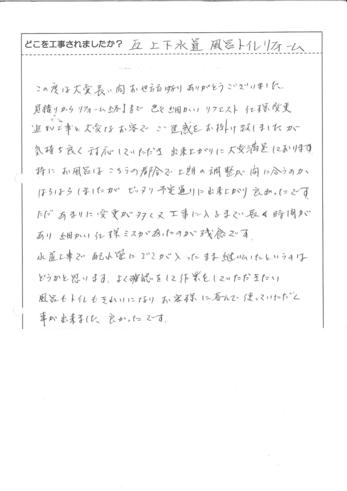 どこを工事されましたか？ 上下水道 風呂トイレリフォーム
この度は大変長い間お世話になりありがとうございました。
見積りからリフォーム まで 色々細かいリクエスト 仕様変更
追加工事と大変なお客で ご迷惑をお掛け致しましたが
気持ち良く対応していただき 出来上がりに大変満足しております
特に お風呂はこちらの都合で工期の調整が間に合うのか
はらはらしましたが ピッタリ予定通りに出来上がり良かったです
ただ あまりに変更が多く 工事に入るまで長い時間が
あり 細かい仕様ミスがあったのが残念です。
水道工事で 配水管に ゴミが入ったまま継いだというのは
どうかと思います。よく確認をして作業をしていただきたい
風呂もトイレもきれいになり お客様に喜んで使っていただく
事が出来ました 良かったです。